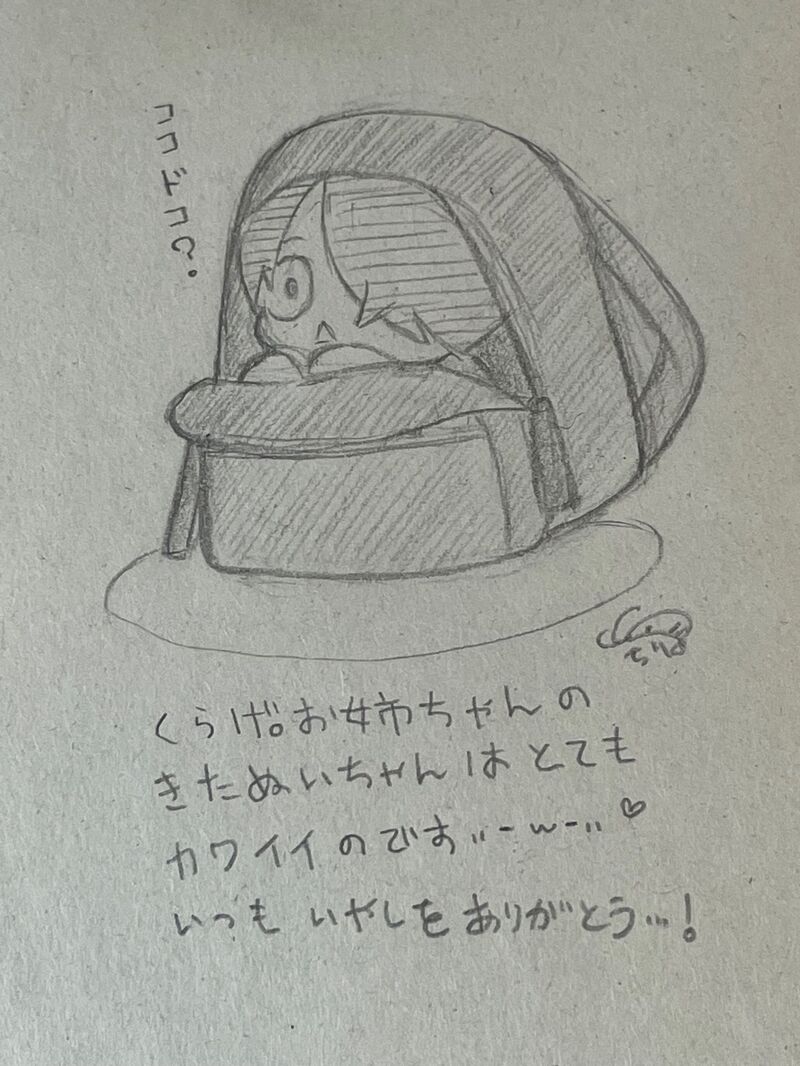 くらげ。お姉ちゃんの
きたぬいちゃんはとても
カワイイのです,,-w-,,♡
いつもいやしをありがとう…!